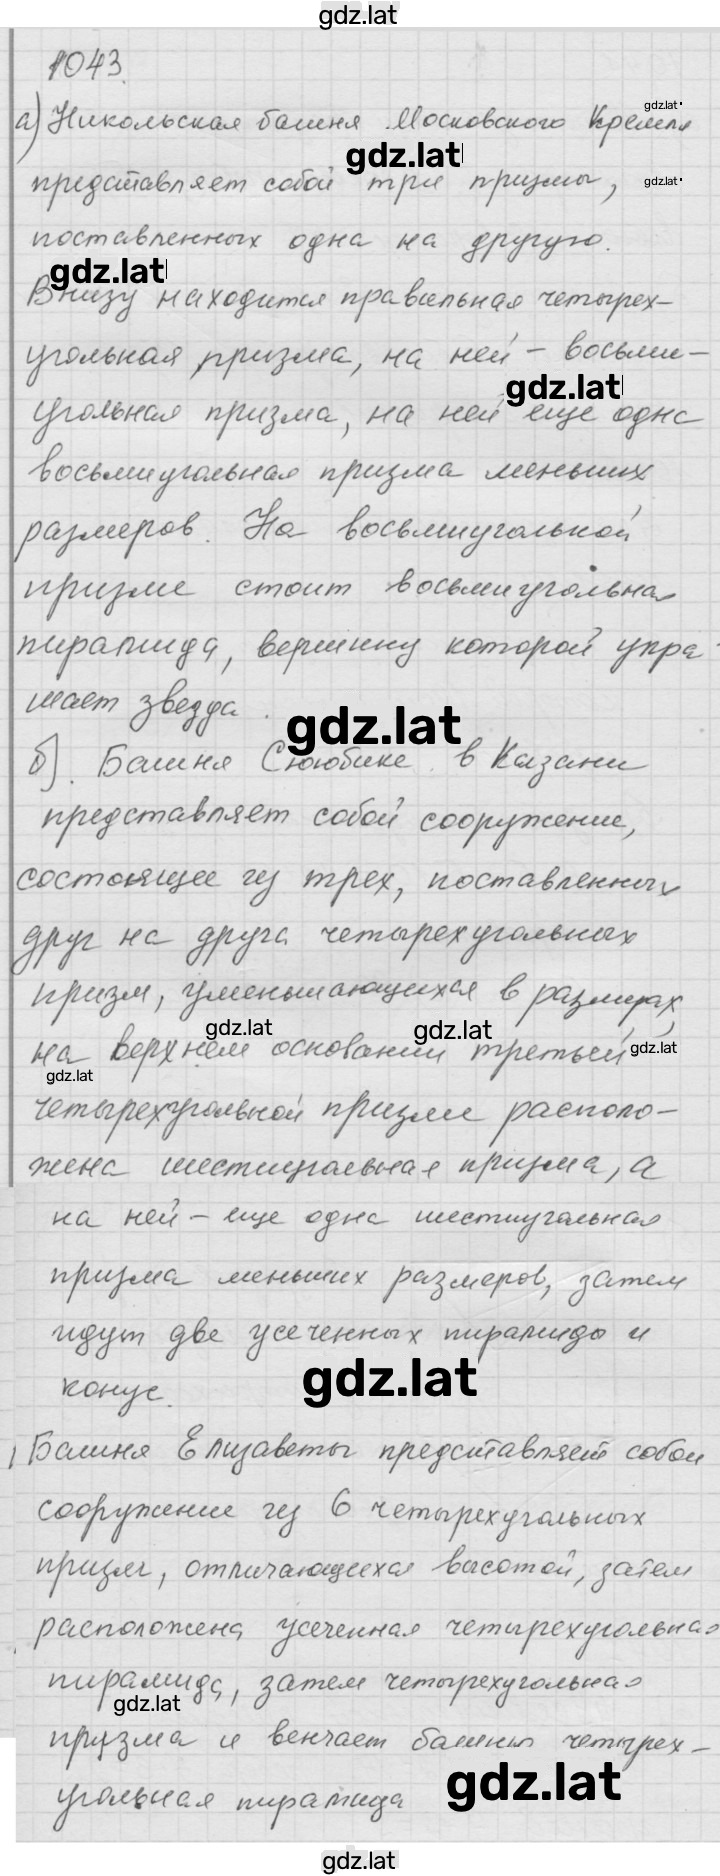 gdz.lat
1043.
а) Никольская башня Московского Кремля
gdz.lat
gdz.lat
представляет собой три призмы,
gdz.lat
поставленных одна на другую.
gdz.lat
Внизу находится правильная четырех-
угольная призма, на ней – восьми-
gdz.lat
угольная призма, на ней еще одна
восьмиугольная призма меньших
размеров. На восьмиугольной
призме стоит восьмиугольная
пирамида, вершину которой укра-
шает звезда.
gdz.lat
б). Башня Сююбике в Казани
представляет собой сооружение,
состоящее из трех, поставленных
друг на друга четырехугольных
призм, уменьшающихся в размерах,
gdz.lat
gdz.lat
на верхнем основании третьей
gdz.lat
gdz.lat
четырехугольной призме располо-
жена шестиугольная призма, а
на ней – еще одна шестиугольная
призма меньших размеров, затем
идут две усеченных пирамиды и
конус.
gdz.lat
Башня Елизаветы представляет собой
сооружение из 6 четырехугольных
призм, отличающихся высотой, затем
расположена усеченная четырехугольная
пирамида, затем четырехугольная
gdz.lat
призма и венчает башню четырех-
угольная пирамида
gdz.lat
gdz.lat